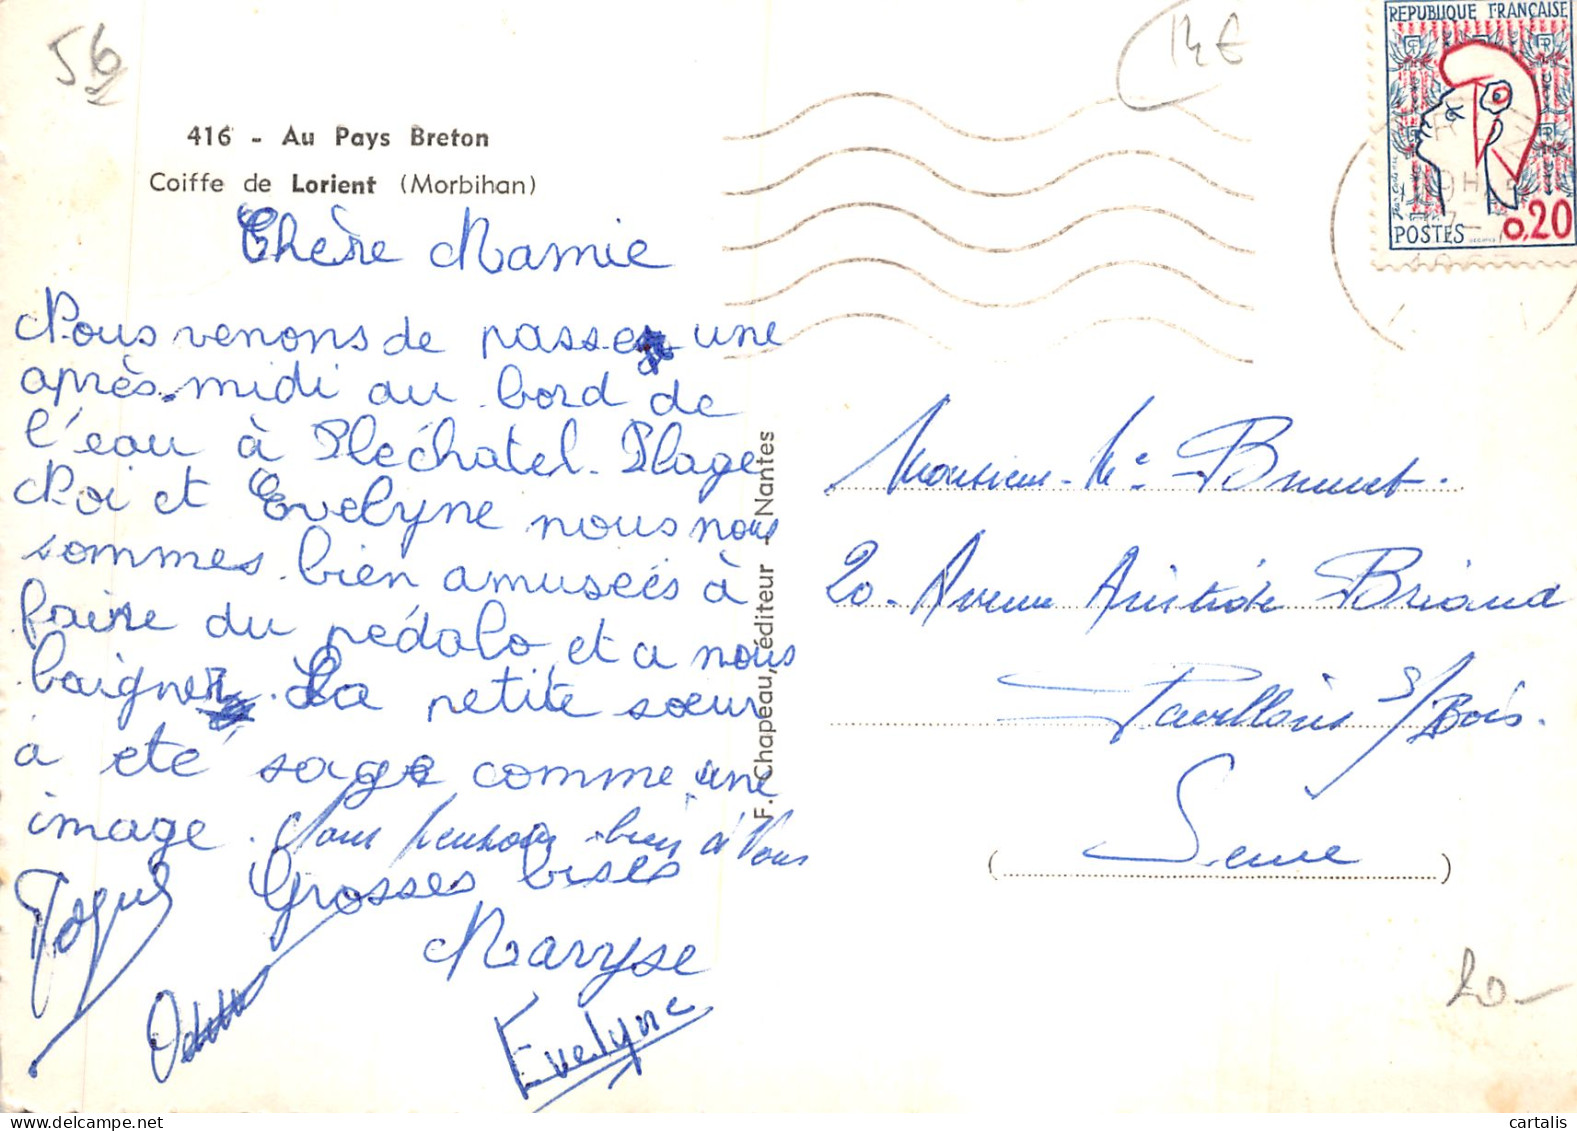 56
14€
416 - Au Pays Breton
Coiffe de Lorient (Morbihan)
Chère Mamie
Nous venons de passer une
après-midi au bord de
l'eau à Pléchatel-Plage
Moi et Evelyne nous nous
sommes bien amusées à
faire du pédalo et a nous
baigner. La petite sœur
à eté sage comme une
image. Nous pensons bien à Vous
Grosses bises
Maryse
Odette
Evelyne
F. Chapeau, éditeur - Nantes
REPUBLIQUE FRANÇAISE
POSTES 0,20
19H
7-
Monsieur-Me Brunet.
20- Avenue Aristide Briand
Pavillons s/Bois.
( Seine )
20-
cartalis